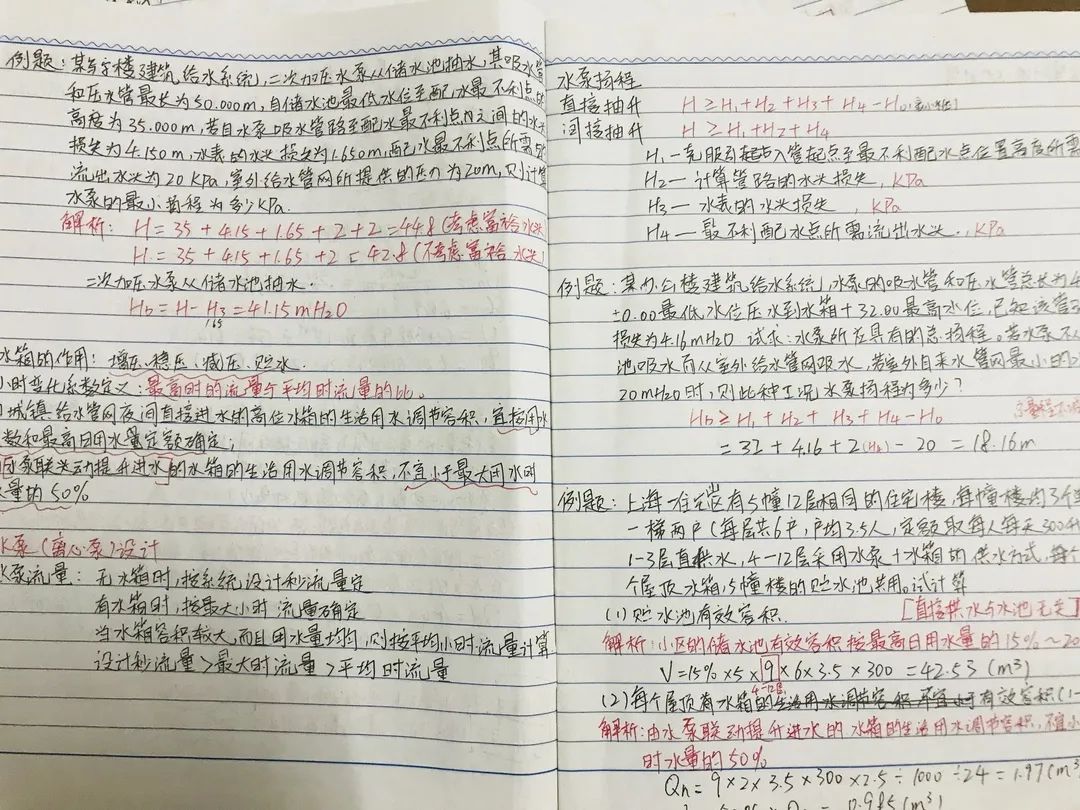 例题：某写字楼建筑给水系统，二次加压水泵从储水池抽水，其吸水管
和压水管最长为50.000m，自储水池最低水位至配水最不利点的
高度为35.000m，若自水泵吸水管路至配水最不利点内之间的水头
损失为4.150m，水表的水头损失为1.650m，配水最不利点所需
流出水头为20KPa，室外给水管网所提供的压力为20m，则计算
水泵的最小扬程为多少KPa.
解析： H = 35 + 4.15 + 1.65 + 2 + 2 = 44.8 (考虑富裕水头
H = 35 + 4.15 + 1.65 + 2 = 42.8 (不考虑富裕水头)
二次加压水泵从储水池抽水.
Hb = H - H3 = 41.15 mH2O
1.65
水箱的作用：增压、稳压、减压、贮水.
小时变化系数定义：最高时的流量与平均时流量的比。
城镇给水管网夜间直接进水的高位水箱的生活用水调节容积，宜按用水
数和最高日用水量定额确定；
泵联动提升进水的水箱的生活用水调节容积，不宜小于最大用水时
水量的50%
水泵(离心泵)设计
水泵流量：无水箱时，按系统设计秒流量定
有水箱时，按最大小时流量确定
当水箱容积较大，而且用水量均匀，则按平均小时流量计算
设计秒流量>最大时流量>平均时流量
水泵扬程
直接抽升 H ≥ H1 + H2 + H3 + H4 - H0
间接抽升 H ≥ H1 + H2 + H4
H1 — 克服引入管起点至最不利配水点位置高度所需
H2 — 计算管路的水头损失，KPa
H3 — 水表的水头损失，KPa
H4 — 最不利配水点所需流出水头.，KPa
例题：某办公楼建筑给水系统，水泵的吸水管和压水管总长为4
±0.00最低水位压水到水箱+32.00最高水位，已知该管
损失为4.16mH2O 试求：水泵所应具有的总扬程。若水泵不从
池吸水而从室外给水管网吸水，若室外自来水管网最小的
20mH2O时，则此种工况水泵扬程为多少？
Hb ≥ H1 + H2 + H3 + H4 - H0
= 32 + 4.16 + 2(H4) - 20 = 18.16m
例题：上海一住宅区有5幢12层相同的住宅楼，每幢楼均3个
一梯两户(每层共6户，户均3.5人，定额取每人每天300升
1-3层直供水，4-12层采用水泵+水箱的供水方式，每个
个屋顶水箱，5幢楼的贮水池共用。试计算
(1) 贮水池有效容积. [直接供水与水池无关]
解析：小区的储水池有效容积按最高日用水量的15%~20
V = 15% × 5 × 9 × 6 × 3.5 × 300 = 42.53 (m³)
4-12层
(2) 每个屋顶有水箱的生活用水调节容积不宜小于有效容积(1-
解析：由水泵联动提升进水的水箱的生活用水调节容积，不宜小
时水量的50%
Qh = 9 × 2 × 3.5 × 300 × 2.5 ÷ 1000 ÷ 24 = 1.97 (m³
= 0.985 (m³)